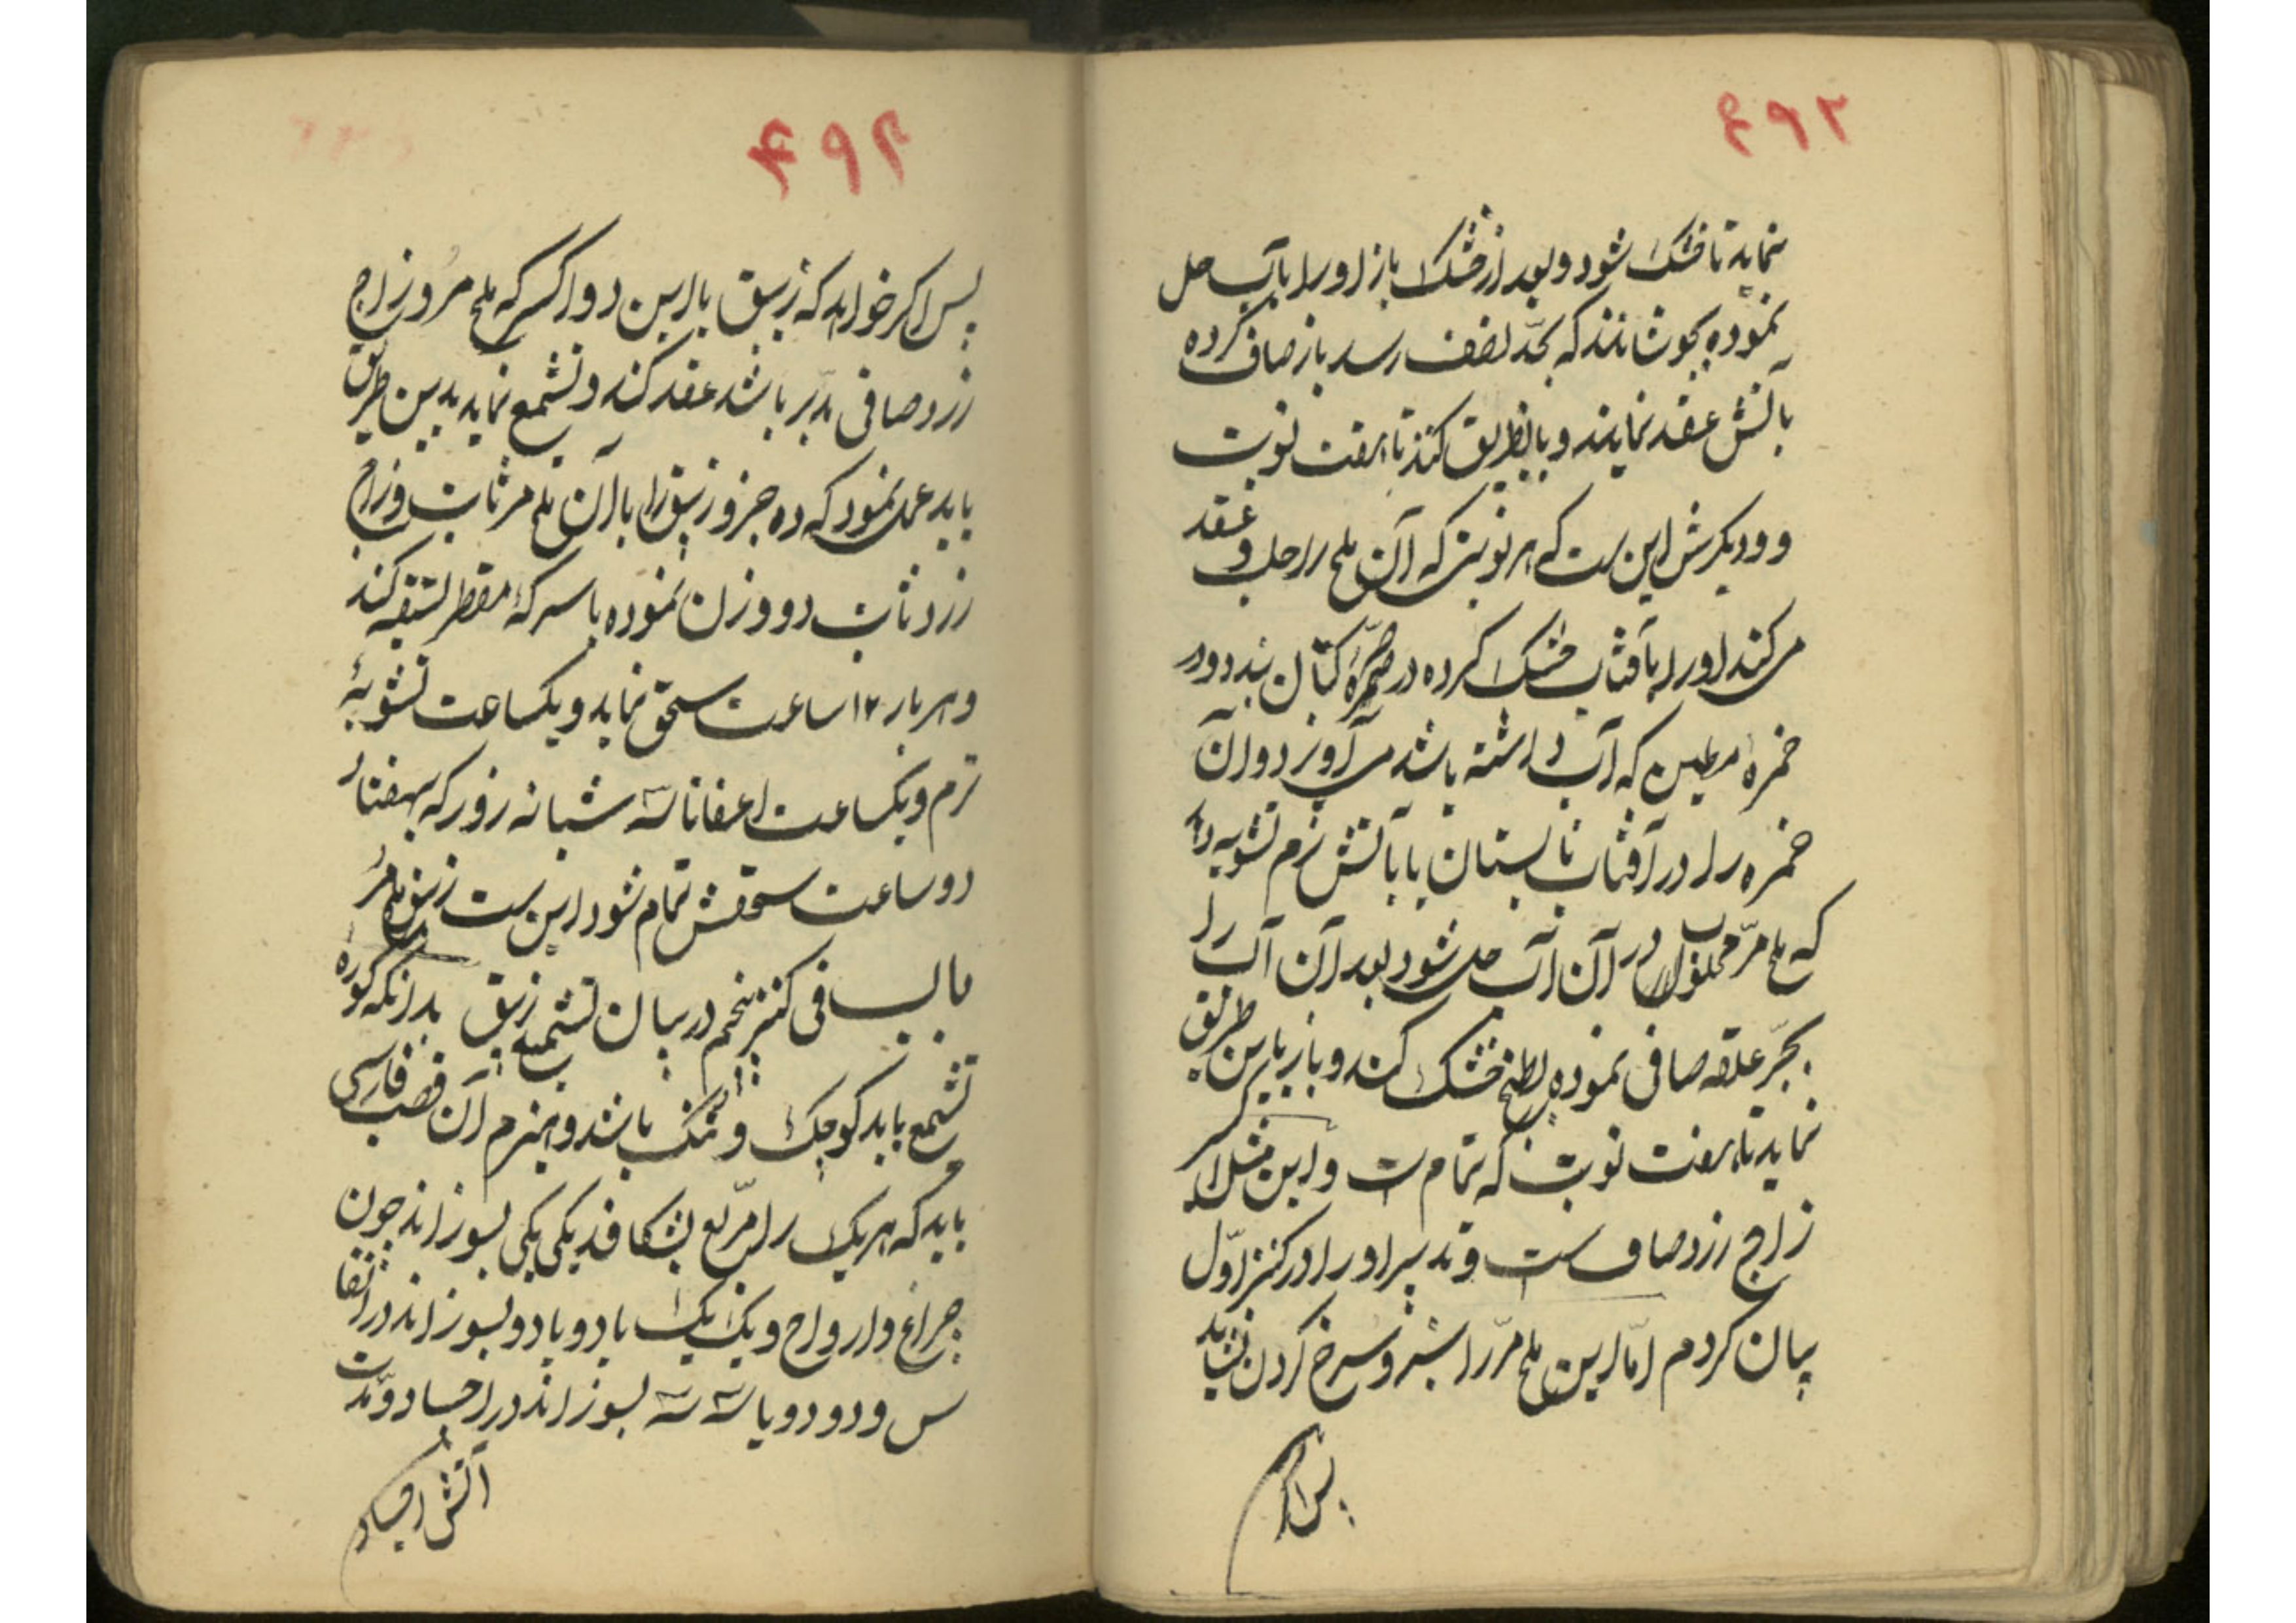 ۴۹۲
نماید تا خشک شود و بعد از خشک باز او را بآب حل
نموده بجوشانند که بحد نصف رسد باز صاف کرده
بآتش عقد نمایند و باینطریق کنند تا هفت نوبت
و ودیکرش این ست که هر نوبتی که آن ملح را حل و عقد
می کند او را بآفتاب خشک کرده در صرّهٔ کتان بندد و در
خمره مطین که آب داشته باشد می آویزد و آن
خمره را در آفتاب تابستان یا بآتش نرم تشویه دهد
که ملح مرّ محلول در آن آب حل شود بعد آن آب را
بجرّ علقه صافی نموده بطبخ خشک کند و باز باین طریق
نماید تا هفت نوبت که تمام ست و این مثل اکسیر
زاج زرد صاف ست و تدبیر او را در کنز اوّل
بیان کردم امّا این ملح مرّ را سبز و سرخ کردن نشاید
پس اکر
۴۹۴
پس اکر خواهد که زیبق با این دو اکسیر که ملح مرّ و زاج
زرد صافی مدبّر باشد عقد کند و تشمیع نماید بدین طریق
باید عمل نمود که ده جزو زیبق را با آن ملح مر ثابت و زاج
زرد ثابت دو وزن نموده با سرکهٔ مقطر تسقیه کند
و هر بار ۱۲ ساعت سحق نماید و یکساعت تشویهٔ
نرم و یکساعت اعفا تا سه شبانه روز که بهفتاد
دو ساعت سحقش تمام شود این ست زیبق ملح مرّ
باب فی کنز پنجم در بیان تشمیع زیبق بدانکه کوره
تشمیع باید کوچک و تنک باشد و هیزم آن قصب فارسی
باید که هر یک را مربّع بشکافد یکی یکی بسوزاند چون
چراغ و ارواح و یک یک یا دو یا دو بسوزاند در اثقا
س و دو دو یا سه سه بسوزاند در اجساد و مدّت
آتش اجساد